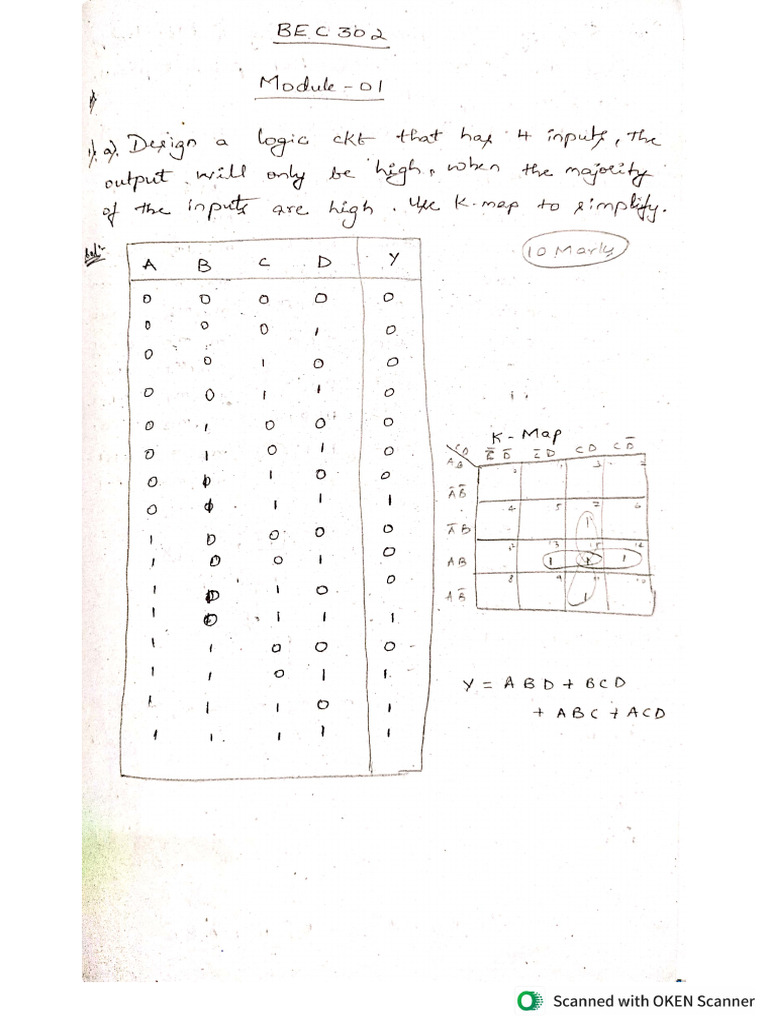 BEC302
Module-01
1). a). Design a logic ckt that has 4 inputs, The
output will only be high, when the majority
of the inputs are high. Use K-map to simplify.
10 Marks
Sol:-
A B C D Y
0 0 0 0 0
0 0 0 1 0
0 0 1 0 0
0 0 1 1 0
0 1 0 0 0
0 1 0 1 0
0 1 1 0 0
0 1 1 1 1
1 0 0 0 0
1 0 0 1 0
1 0 1 0 0
1 0 1 1 1
1 1 0 0 0
1 1 0 1 1
1 1 1 0 1
1 1 1 1 1
K-Map
AB CD C̅D̅ C̅D CD CD̅
A̅B̅ 0 1 3 2
A̅B 4 5 7 6
1
AB 12 13 15 14
1 1 1
AB̅ 8 9 11 10
1
Y = ABD + BCD
+ ABC + ACD
Scanned with OKEN Scanner